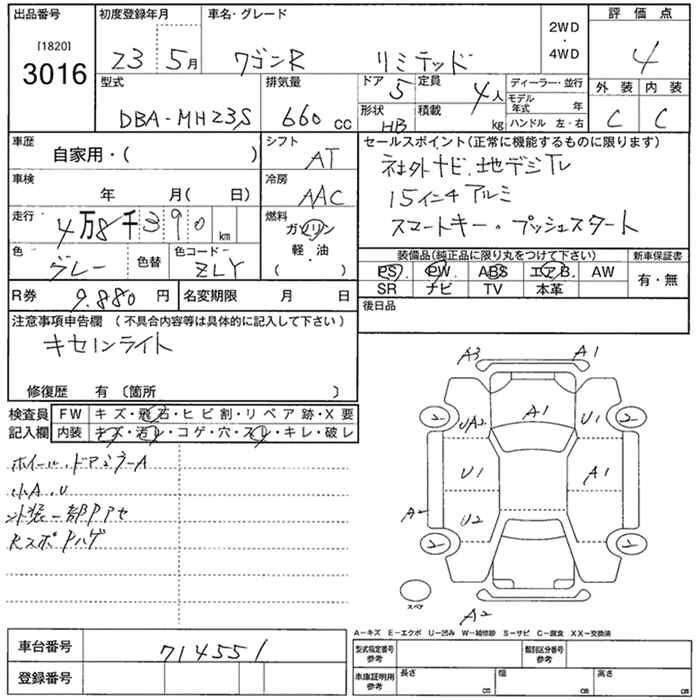 出品番号 初度登録年月 車名・グレード 2WD ・ 4WD 評価点
[1820] 3016 23 5月 ワゴンR リミテッド 4
型式 排気量 ドア 5 定員 4人 ディーラー・並行 外装 内装
DBA-MH23S 660 CC 形状 HB 積載 kg モデル年式 年 C C
ハンドル 左・右
車歴 シフト セールスポイント(正常に機能するものに限ります)
自家用・( ) AT 社外ナビ.地デジTV
車検 冷房 15インチアルミ
年 月( 日) AAC スマートキー・プッシュスタート
走行 4万8千390km 燃料 ガソリン
軽・油
( )
色 グレー 色替 色コード ZLY
装備品(純正品に限り丸をつけて下さい) 新車保証書
PS PW ABS エアB. AW 有・無
SR ナビ TV 本革
R券 9.880円 名変期限 月 日 後日品
注意事項申告欄 (不具合内容等は具体的に記入して下さい)
キセノンライト
修復歴 有 〔箇所 〕
検査員 FW キズ・飛石・ヒビ割・リペア跡・X要
記入欄 内装 キズ・汚レ・コゲ・穴・スレ・キレ・破レ
ホイール.ドアミラーA
小A.U
A3 A1
A1
2 UA2 U1 2
U1 A1
A2 U2
2 2
スペア
A2
A-キズ E-エクボ U-凹み W-補修跡 S-サビ C-腐食 XX-交換済
車台番号 714551
登録番号
型式指定番号 参考 類別区分番号 参考
車庫証明用 参考 長さ cm 幅 cm 高さ cm